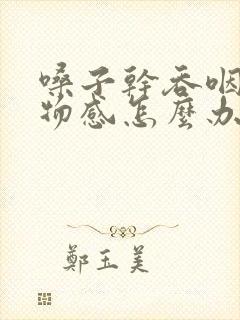 嗓子幹吞咽
物感怎麼办
鄭玉美